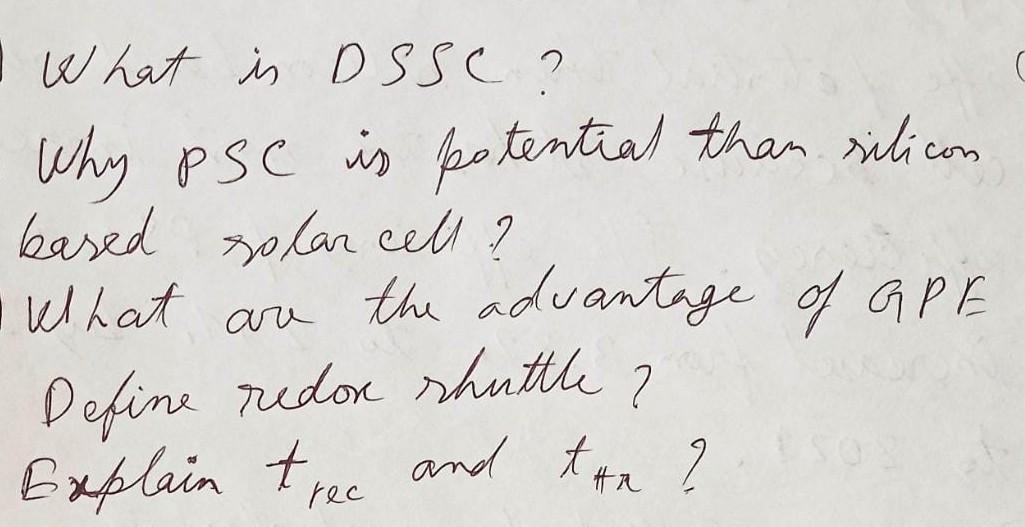 What is DSSC ?
Why PSC is potential than silicon
based solar cell ?
What are the advantage of GPE
Define redox shuttle ?
Explain t rec and t